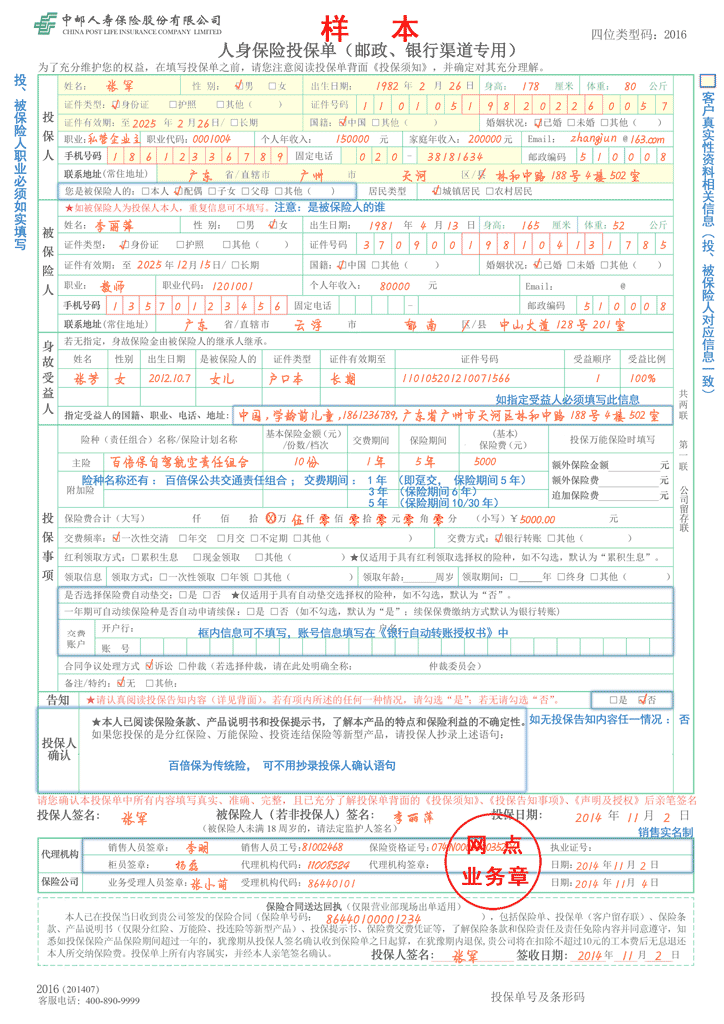 中邮人寿保险股份有限公司
CHINA POST LIFE INSURANCE COMPANY LIMITED
样 本
四位类型码：2016
人身保险投保单（邮政、银行渠道专用）
为了充分维护您的权益，在填写投保单之前，请您注意阅读投保单背面《投保须知》，并确定对其充分理解。
投、被保险人职业必须如实填写
客户真实性资料相关信息（投、被保险人对应信息一致）
投保人
姓名：张军 性 别：☑男 □女 出生日期：1982 年 2 月 26 日 身高：178 厘米 体重：80 公斤
证件类型：☑身份证 □护照 □其他（ ） 证件号码 110105198202260057
证件有效期：至 2025 年 2 月 26 日/□长期 国籍：☑中国 □其他（ ） 婚姻状况：☑已婚 □未婚 □其他（ ）
职业：私营企业主 职业代码：0001004 个人年收入：150000 元 家庭年收入：200000 元 Email: zhangjun @163.com
手机号码 18612336789 固定电话 020-38181634 邮政编码 510008
联系地址(常住地址) 广东 省/直辖市 广州 市 天河 区/县 林和中路188号4楼502室
您是被保险人的：□本人 ☑配偶 □子女 □父母 □其他（ ） 居民类型 ☑城镇居民 □农村居民
被保险人
★如被保险人为投保人本人，重复信息可不填写。注意：是被保险人的谁
姓名：李丽萍 性 别： □男 ☑女 出生日期：1981 年 4 月 13 日 身高：165 厘米 体重：52 公斤
证件类型：☑身份证 □护照 □其他（ ） 证件号码 370900198104131785
证件有效期：至 2025 年 12 月 15 日/□长期 国籍：☑中国 □其他（ ） 婚姻状况：☑已婚 □未婚 □其他（ ）
职业：教师 职业代码：1201001 个人年收入：80000 元 Email: @
手机号码 13570123456 固定电话 - 邮政编码 510008
联系地址(常住地址) 广东 省/直辖市 云浮 市 郁南 区/县 中山大道128号201室
身故受益人
若无指定，身故保险金由被保险人的继承人继承。
姓名 性别 出生日期 是被保险人的 证件类型 证件有效期至 证件号码 受益顺序 受益比例
张芳 女 2012.10.7 女儿 户口本 长期 110105201210071566 1 100%
如指定受益人必须填写此信息
指定受益人的国籍、职业、电话、地址：中国，学龄前儿童，1861236789，广东省广州市天河区林和中路188号4楼502室
共两联 第一联 公司留存联
投保事项
险种（责任组合）名称/保险计划名称 基本保险金额(元)/份数/档次 交费期间 保险期间 （基本）保险费(元) 投保万能保险时填写
主险 百倍保自驾航空责任组合 10份 1年 5年 5000 额外保险金额 元
附加险 险种名称还有：百倍保公共交通责任组合； 交费期间： 1 年 （即趸交， 保险期间 5 年） 额外保险费 元
3 年 （保险期间 6 年） 追加保险费 元
5 年 （保险期间 10/30 年）
保险费合计（大写） 仟 佰 拾 ⊗万 伍 仟 零 佰 零 拾 零 元 零 角 零 分 （小写）￥5000.00 元
交费频率：☑一次性交清 □年交 □月交 □不定期 □其他（ ） 交费方式：☑银行转账 □其他（ ）
红利领取方式：□累积生息 □现金领取 □其他（ ）★仅适用于具有红利领取选择权的险种，如不勾选，默认为“累积生息”。
领取信息 领取方式：□一次性领取 □年领 □其他（ ） 领取年龄：____周岁 领取期间：□____年 □终身 □其他（ ）
是否选择保险费自动垫交：□是 □否 ★仅适用于具有自动垫交选择权的险种，如不勾选，默认为“否”。
一年期可自动续保险种是否自动申请续保：□是 □否（如不勾选，默认为“是”；续保保费缴纳方式默认为银行转账）
交费账户 开户行： 户名
框内信息可不填写，账号信息填写在《银行自动转账授权书》中
账 号
合同争议处理方式 ☑诉讼 □仲裁（若选择仲裁，请在此处明确全称： 仲裁委员会）
备注/特约：☑无 □其他：
告知 ★请认真阅读投保告知内容（详见背面）。若有项内所述的任何一种情况，请勾选“是”；若无请勾选“否”。 □是 ☑否
投保人确认
★本人已阅读保险条款、产品说明书和投保提示书，了解本产品的特点和保险利益的不确定性。 如无投保告知内容任一情况： 否
如果您投保的是分红保险、万能保险、投资连结保险等新型产品，请投保人抄录上述语句：
百倍保为传统险， 可不用抄录投保人确认语句
请您确认本投保单中所有内容填写真实、准确、完整，且已充分了解投保单背面的《投保须知》、《投保告知事项》、《声明及授权》后亲笔签名
投保人签名：张军 被保险人（若非投保人）签名：李丽萍 投保日期：2014 年 11 月 2 日
（被保险人未满 18 周岁的，请法定监护人签名）
销售实名制
代理机构 销售人员签章：李明 销售人员工号：81002468 保险资格证号： 执业证号：
柜员签章：杨磊 代理机构代码：11008524 代理机构签章： 日期：2014 年 11 月 2 日
保险公司 业务受理人员签章：张小萌 受理机构代码：86440101 日期：2014 年 11 月 4 日
网 点
业务章
保险合同送达回执（仅限营业部现场出单适用）
本人已在投保当日收到贵公司签发的保险合同（保险单号码： 86440100001234 ），包括保险单、投保单（客户留存联）、保险条
款、产品说明书（仅限分红险、万能险、投连险等新型产品）、投保提示书、保险费交费凭证等，了解保险条款和保险责任及责任免除内容并同意遵守，知
悉如投保保险产品保险期间超过一年的，犹豫期从投保人签名确认收到保险单之日起算，在犹豫期内退保，贵公司将在扣除不超过10元的工本费后无息退还
本人所交纳保险费。投保单上所有内容属实，并经本人亲笔签名确认。 投保人签名：张军 签收日期：2014 年 11 月 2 日
2016 (201407)
客服电话：400-890-9999
投保单号及条形码